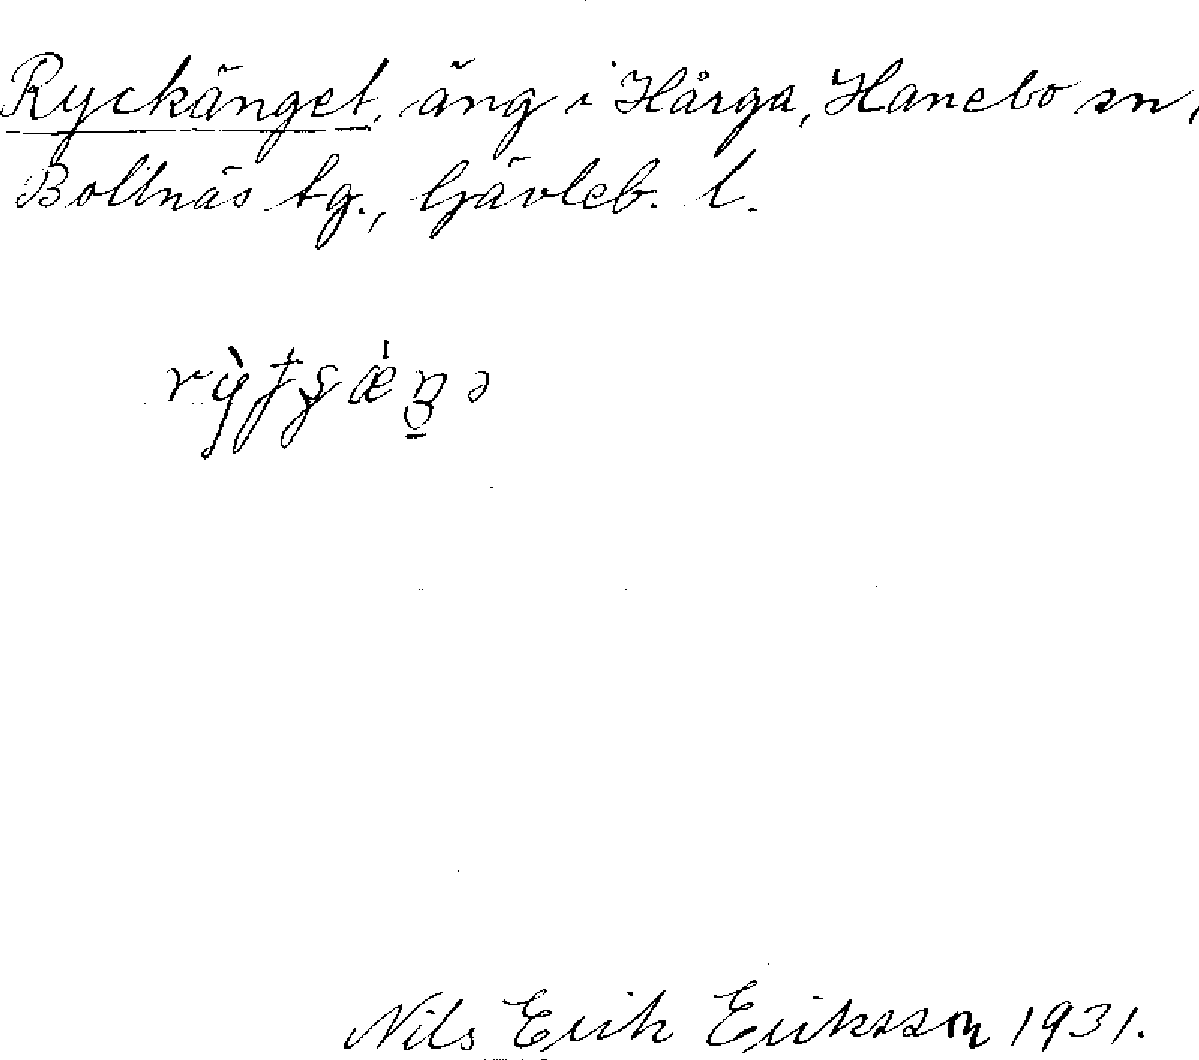 Ryckänget, äng i Hårga, Hanebo sn,
Bollnäs tg., Gävleb. l.
Nils Erik Eriksson 1931.